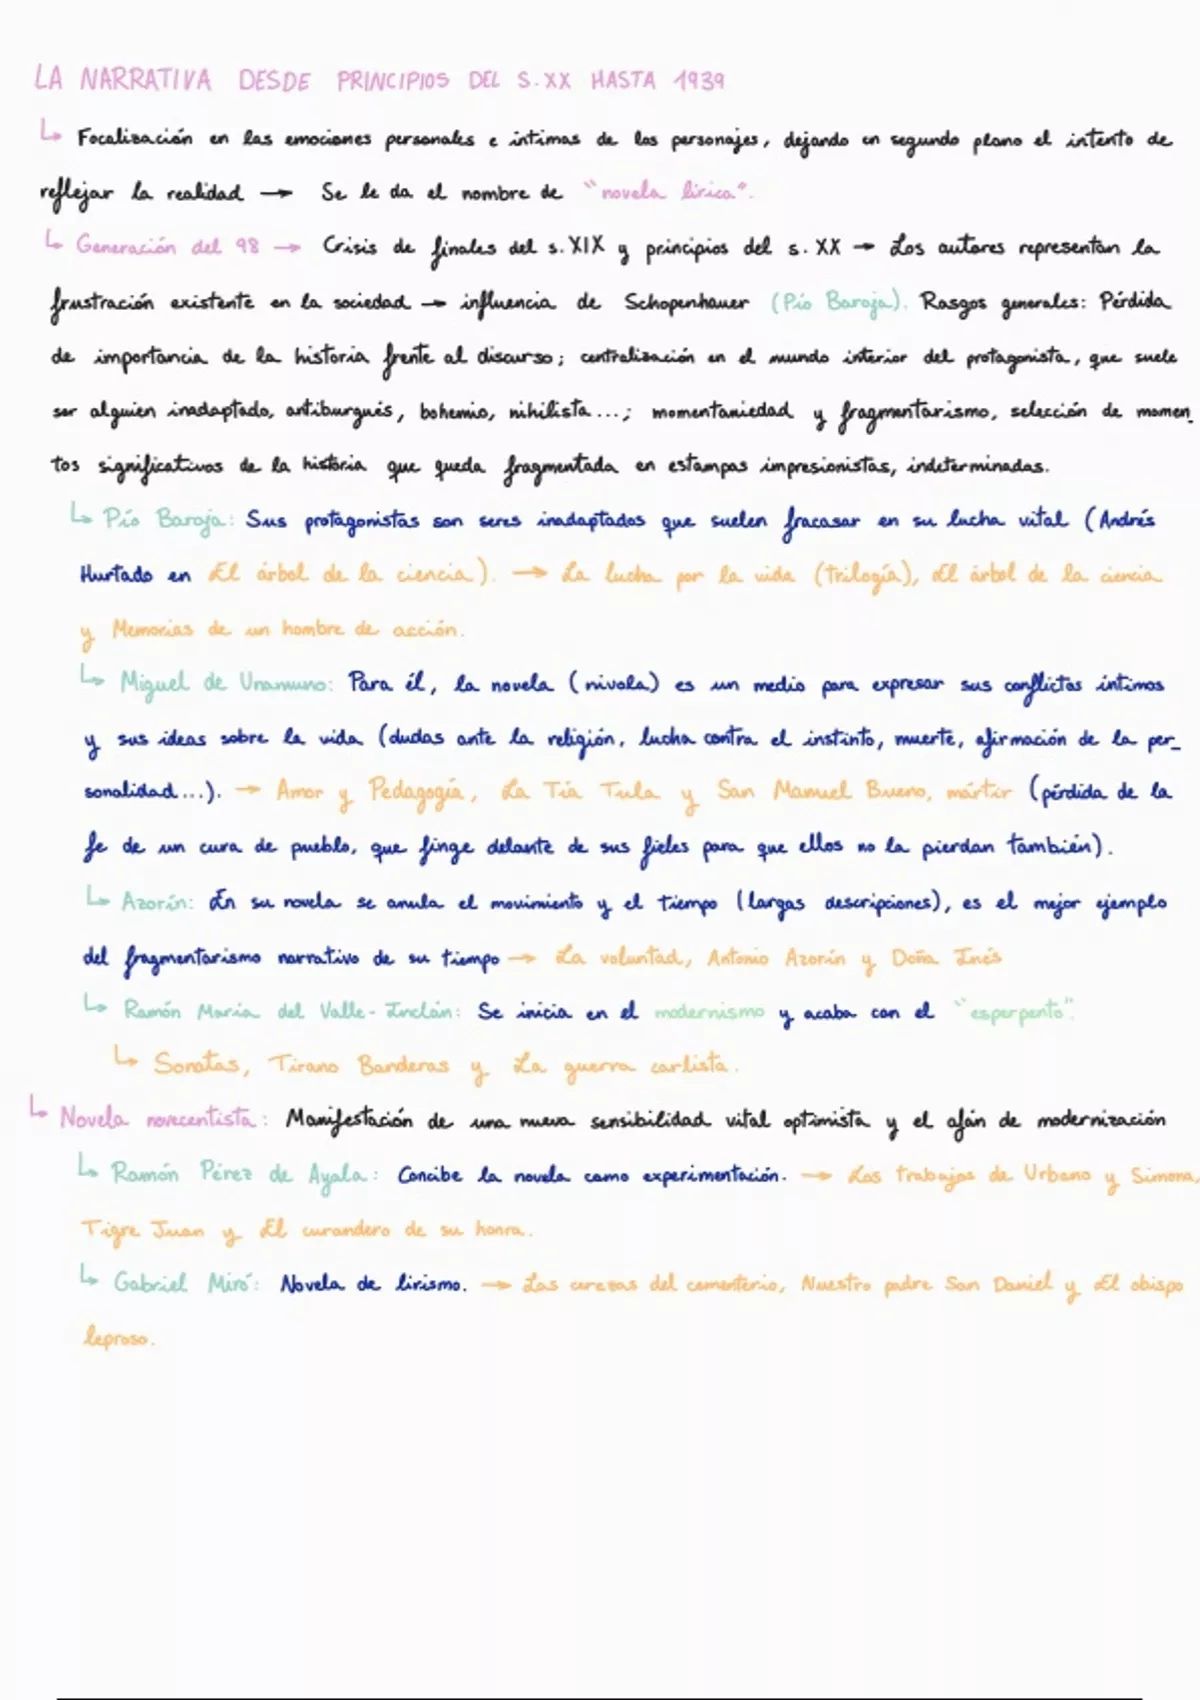 LA NARRATIVA DESDE PRINCIPIOS DEL S.XX HASTA 1939
↳ Focalización en las emociones personales e íntimas de los personajes, dejando en segundo plano el intento de
reflejar la realidad → Se le da el nombre de "novela lírica".
↳ Generación del 98 → Crisis de finales del s. XIX y principios del s. XX → Los autores representan la
frustración existente en la sociedad → influencia de Schopenhauer (Pío Baroja). Rasgos generales: Pérdida
de importancia de la historia frente al discurso; centralización en el mundo interior del protagonista, que suele
ser alguien inadaptado, antiburgués, bohemio, nihilista...; momentaniedad y fragmentarismo, selección de momen_
tos significativos de la historia que queda fragmentada en estampas impresionistas, indeterminadas.
↳ Pío Baroja: Sus protagonistas son seres inadaptados que suelen fracasar en su lucha vital (Andrés
Hurtado en El árbol de la ciencia). → La lucha por la vida (trilogía), El árbol de la ciencia
y Memorias de un hombre de acción.
↳ Miguel de Unamuno: Para él, la novela (nivola) es un medio para expresar sus conflictos íntimos
y sus ideas sobre la vida (dudas ante la religión, lucha contra el instinto, muerte, afirmación de la per_
sonalidad...). → Amor y Pedagogía, La Tía Tula y San Manuel Bueno, mártir (pérdida de la
fe de un cura de pueblo, que finge delante de sus fieles para que ellos no la pierdan también).
↳ Azorín: En su novela se anula el movimiento y el tiempo (largas descripciones), es el mejor ejemplo
del fragmentarismo narrativo de su tiempo → La voluntad, Antonio Azorín y Doña Inés
↳ Ramón María del Valle-Inclán: Se inicia en el modernismo y acaba con el "esperpento".
↳ Sonatas, Tirano Banderas y La guerra carlista.
↳ Novela novecentista: Manifestación de una nueva sensibilidad vital optimista y el afán de modernización
↳ Ramón Pérez de Ayala: Concibe la novela como experimentación. → Los trabajos de Urbano y Simona,
Tigre Juan y El curandero de su honra.
↳ Gabriel Miró: Novela de lirismo. → Las cerezas del cementerio, Nuestro padre San Daniel y El obispo
leproso.